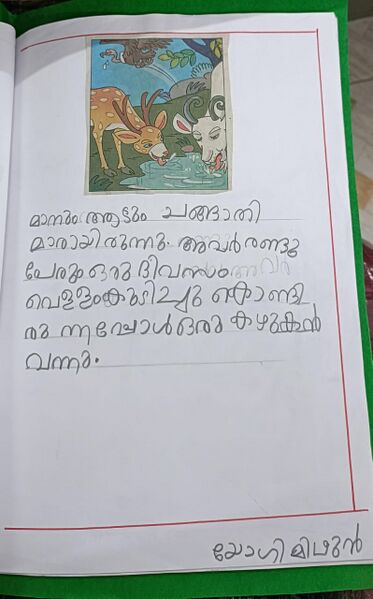 മാനും ആടും ചങ്ങാതി
മാരായിരുന്നു. അവർ രണ്ടു
പേരും ഒരു ദിവസം
വെള്ളം കുടിച്ചു കൊണ്ടി
രു ന്നപ്പോൾ ഒരു കഴുകൻ
വന്നു.
യോഗി മിഥുൻ